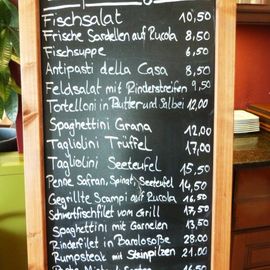 Fischsalat 10,50
Frische Sardellen auf Rucola 8,50
Fischsuppe 6,50
Antipasti della Casa 8,50
Feldsalat mit Rinderstreifen 9,50
Tortelloni in Butter und Salbei 12,00
Spaghettini Grana 12,00
Tagliolini Trüffel 17,00
Tagliolini Seeteufel 15,50
Penne Safran, Spinat, Seeteufel 14,50
Gegrillte Scampi auf Rucola 16,50
Schwertfischfilet vom Grill 17,50
Spaghettini mit Garnelen 13,50
Rinderfilet in Barolosoße 28.00
Rumpsteak mit Steinpilzen 21.00